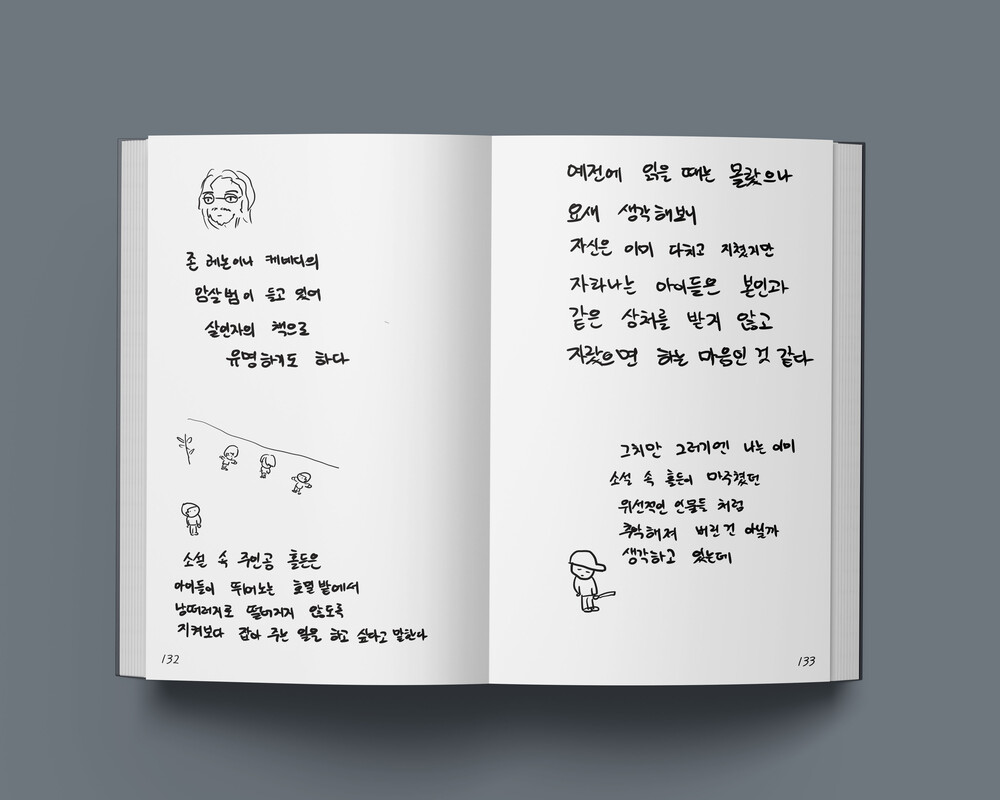 존 레논이나 케네디의
암살범이 들고 있어
살인자의 책으로
유명하기도 하다
소설 속 주인공 홀든은
아이들이 뛰어노는 호밀밭에서
낭떠러지로 떨어지지 않도록
지켜보다 잡아 주는 일을 하고 싶다고 말한다
132
예전에 읽을 때는 몰랐으나
요새 생각해보니
자신은 이미 다치고 지쳤지만
자라나는 아이들은 본인과
같은 상처를 받지 않고
자랐으면 하는 마음인 것 같다
그치만 그러기엔 나는 이미
소설 속 홀든이 마주쳤던
위선적인 인물들 처럼
추악해져 버린 건 아닐까
생각하고 있는데
133